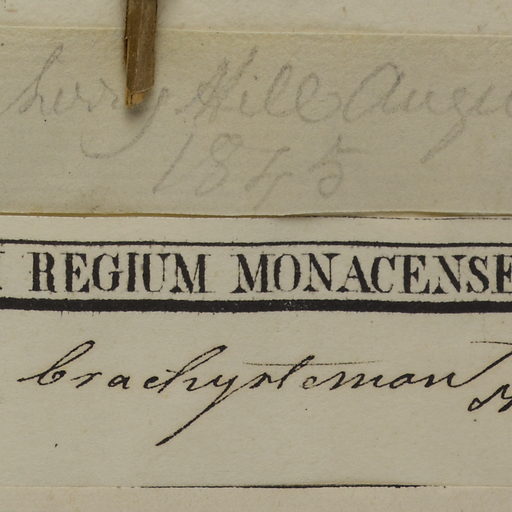 herry Hill Augu
1845
REGIUM MONACENSE
brachystemon